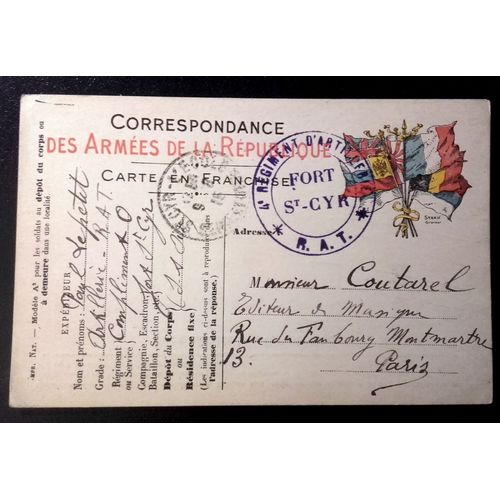 CORRESPONDANCE
DES ARMÉES DE LA RÉPUBLIQUE
CARTE EN FRANCHISE
4e REGIMENT D'ARTILLERIE
FORT
ST-CYR
* R. A. T. *
Adresse
Monsieur Coutarel
Editeur de Musique
Rue du Faubourg Montmartre
13.
Paris
IMP. NAT. — Modèle A1 pour les soldats au dépôt du corps ou
à demeure dans une localité.
EXPÉDITEUR
Nom et prénoms : Paul Lepetit
Grade : Artillerie - R.A.T.
Régiment
ou Service)
Compagnie, Escadron,
Bataillon, Section, etc.
Fort St Cyr
Dépôt du Corps
ou
Résidence fixe)
(Les indications ci-dessus sont à reproduire
l'adresse de la réponse.)